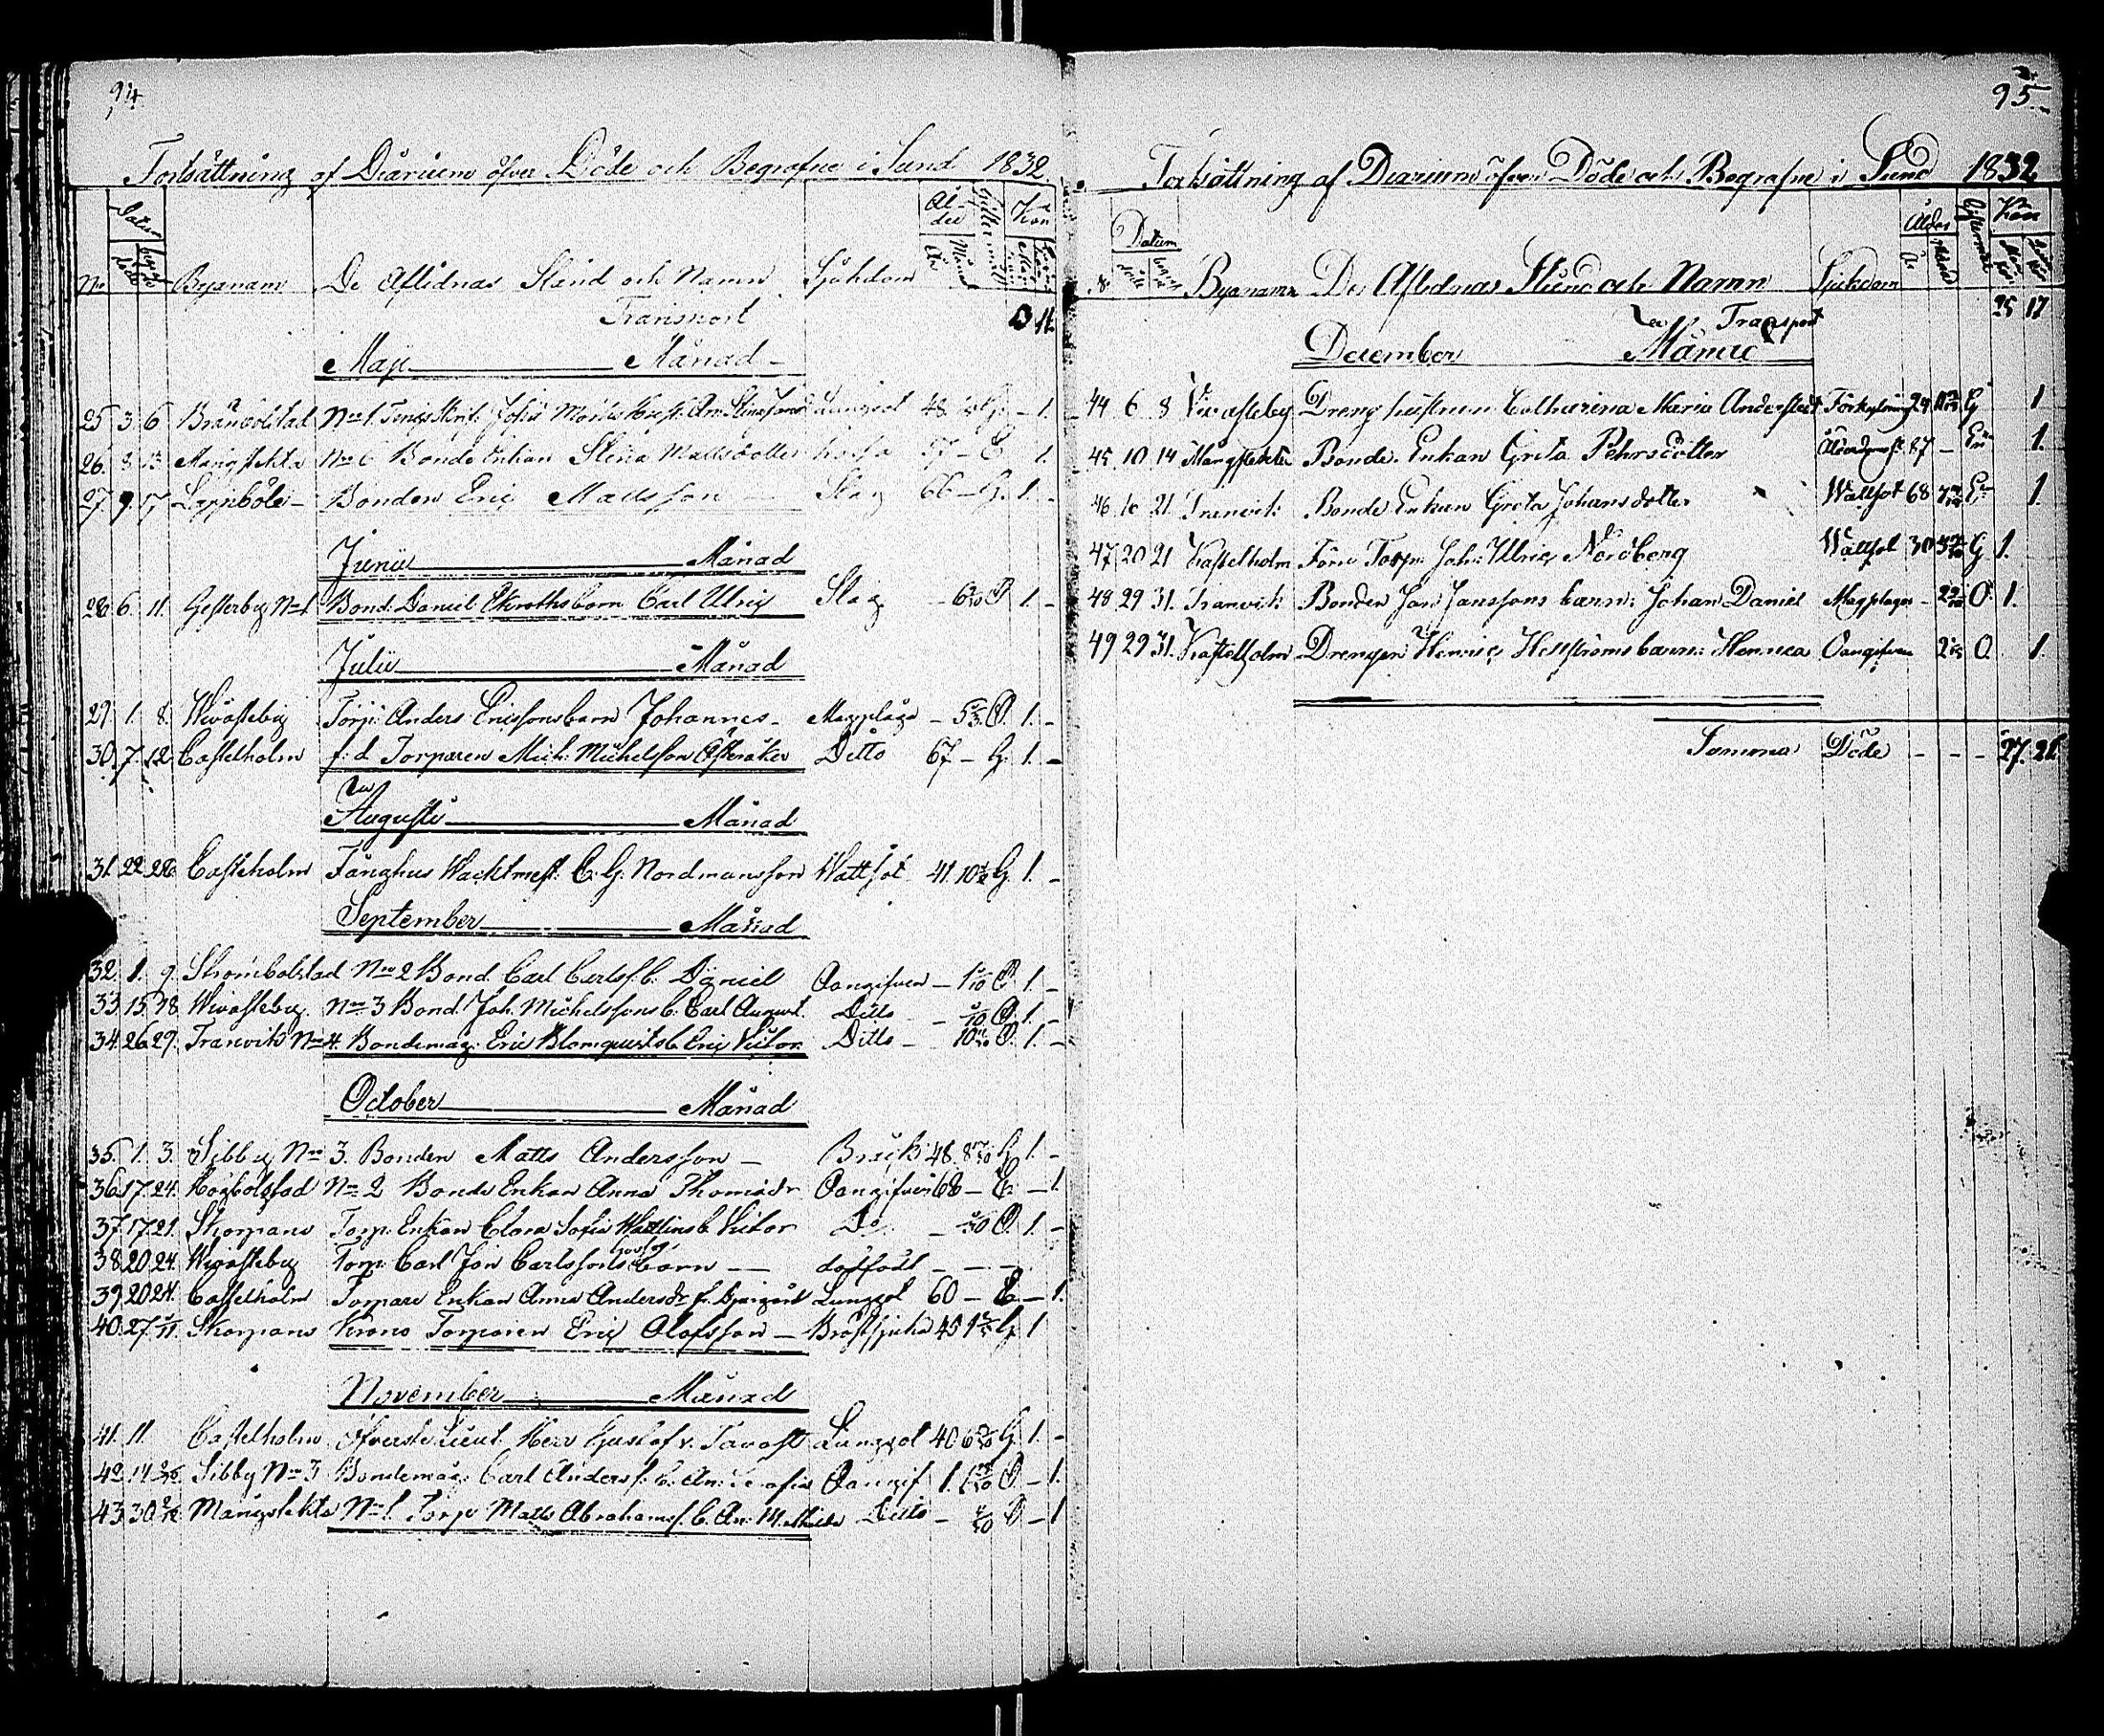 94.
Fortsättning af Diarium öfver Döde och Begrafne i Sund 1832.
No Datum döde begrafne Byanamn De Aflidnas Stånd och Namn Sjukdom Ålder År Månad Giftermål Kön
Transport
Maji Månad
25 3 6 Brändbolstad No 1 48 G. - 1.
26. 8 13 Mångstekta No 6 Bonde Enkan Stina Mattsdotter 57 - E. 1.
27. 9. 17 Bonden Eric Mattsson Slag 66 - G. 1. -
Junii Månad
28. 6. 11. Gesterby No 1 Bond. Daniel barn Carl Ulric Slag - O. 1. -
Julii Månad
29. 1. 8. Wivasteby Torp: Anders Ericssons barn Johannes - Magplåga - O. 1. -
30. 7. 12. Castelholm f: d Torparen Mich: Michelsson Österåker Ditto 67 - G. 1. -
Augusti Månad
31. 22. 26. Casteholm Fånghus Wacktmest. C. G. Nordmansson Wattsot 41. G. 1. -
September Månad
32. 1. 9. Strömbolstad No 2 Bond. Carl Carls. b. Daniel Oangifven - O. 1. -
33. 15. 18. Wivasteby. No 3 Bond. Joh. Michelssons b. Carl August. Ditto - O. 1. -
34. 26 29. Tranvik No 4. Bondemåg: Eric Blomquists b. Eric Victor Ditto - O. 1. -
October Månad
35. 1. 3. Sibby No 3. Bonden Matts Andersson - Bråck 48. G. 1. -
36. 17. 24. Högbolstad No 2 Bonde Enkan Anna Thomasdr Oangifven 68 - E. - 1.
37. 17. 21. Skarpans Torp. Enkan Clara Sofia Wallins b. Victor Do - O. 1. -
38. 20. 24. Wivasteby Torp. Carl Jan Carlssons barn - dödfödt - - -
39. 20 24. Castelholm Torpare Enkan Anna Andersdr Lungsot 60 - E. - 1.
40. 27. Skarpans Krono Torparen Eric Olofsson - Bröstsjuka 45 G. 1
November Månad
41. 11. Castelholm Öfverste Lieut. Herr Gustaf v. Tavast Lungsot 40 G. 1. -
42. 14 Sibby No 3 Bondemåg: Carl Anders. b. An: Oangif. 1. O. - 1.
43. 30 Mångstekta No 1. Torp Matts Abrahams. b. An. M. Ditto - O. - 1
95.
Fortsättning af Diarium öfver Döde och Begrafne i Sund 1832
No Datum döde begrafne Byanamn De Aflidnas Stånd och Namn Sjukdom Ålder År Månad Giftermål Kön
Transport 25 17
December Månad
44 6 8 Vivasteby Dreng hustrun Catharina Maria Anderstedt Förkylning 24 G 1
45 10 14 Mångstekta Bonde Enkan Greta Pehrsdotter 87 - En 1.
46 16 21. Tranvik Bonde Enkan Greta Johansdotter Wattsot 68 En 1.
47 20 21 Kastelholm Förre Torp. Joh: Ulric Nordberg Wattsot 30 G 1.
48 29 31. Tranvik Bonden Jan Janssons barn: Johan Daniel Magplågor - O. 1.
49 29 31. Kastelholm Drengen Henric Hellströms barn: Henrica Oangifven O 1.
Summa Döde - - - 27. 21.